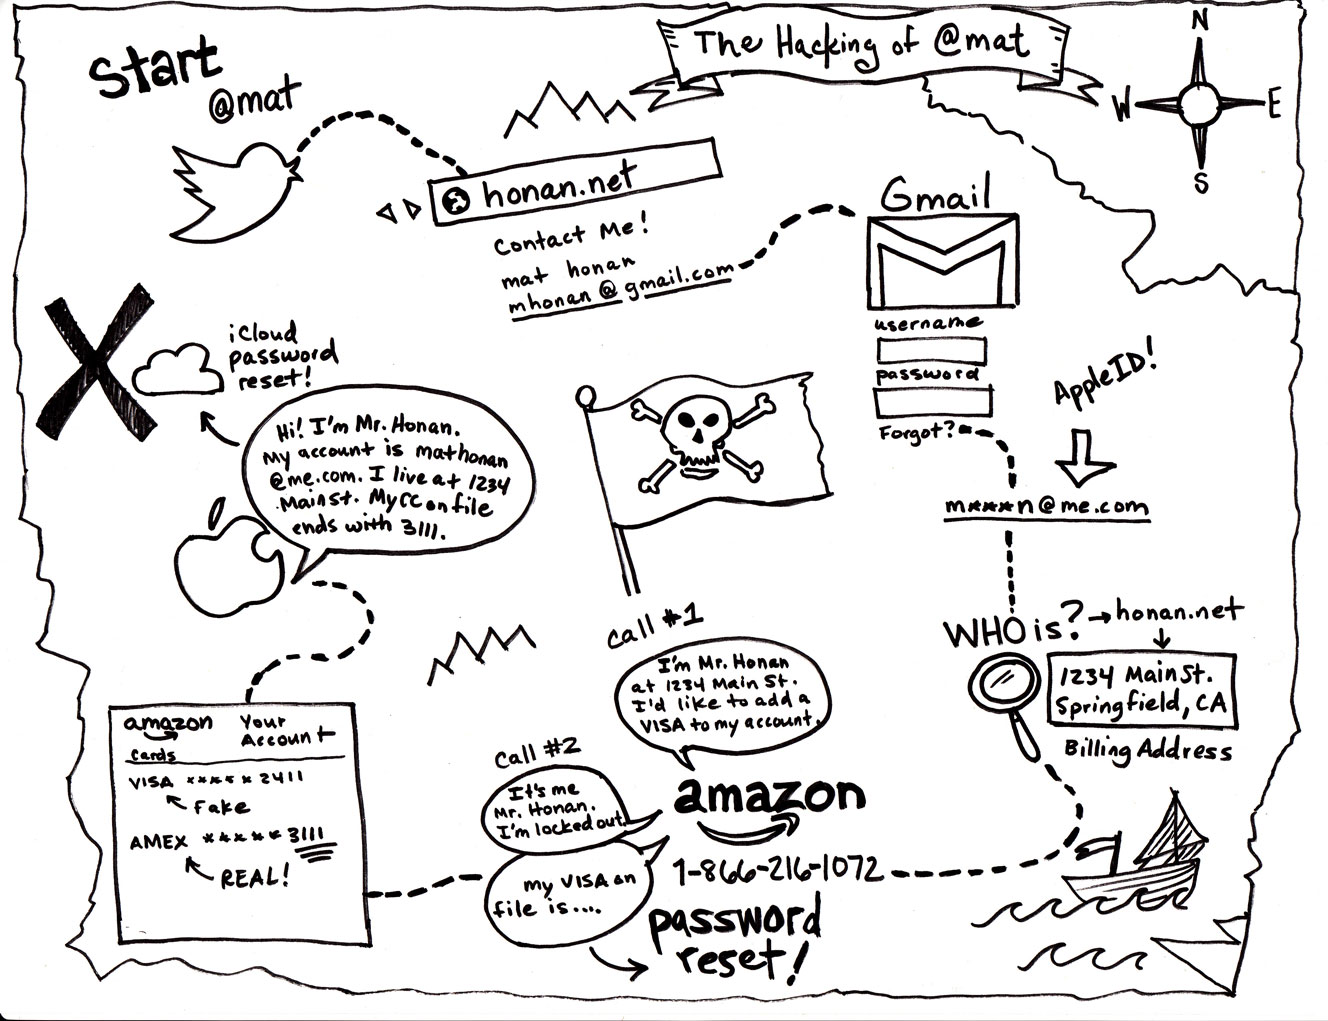 The Hacking of @mat
N
W
E
S
Start
@mat
honan.net
Contact Me!
mat honan
mhonan@gmail.com
Gmail
username
password
Forgot?
AppleID!
m****n@me.com
WHO is? → honan.net
1234 Main St.
Springfield, CA
Billing Address
call #1
I'm Mr. Honan
at 1234 Main St.
I'd like to add a
VISA to my account.
amazon
1-866-216-1072
call #2
It's me
Mr. Honan.
I'm locked out.
my VISA on
file is....
password
reset!
amazon
Your
Account
Cards
VISA ***** 2411
Fake
AMEX ***** 3111
REAL!
Hi! I'm Mr. Honan.
My account is mathonan
@me.com. I live at 1234
Main St. My CC on file
ends with 3111.
iCloud
password
reset!
X